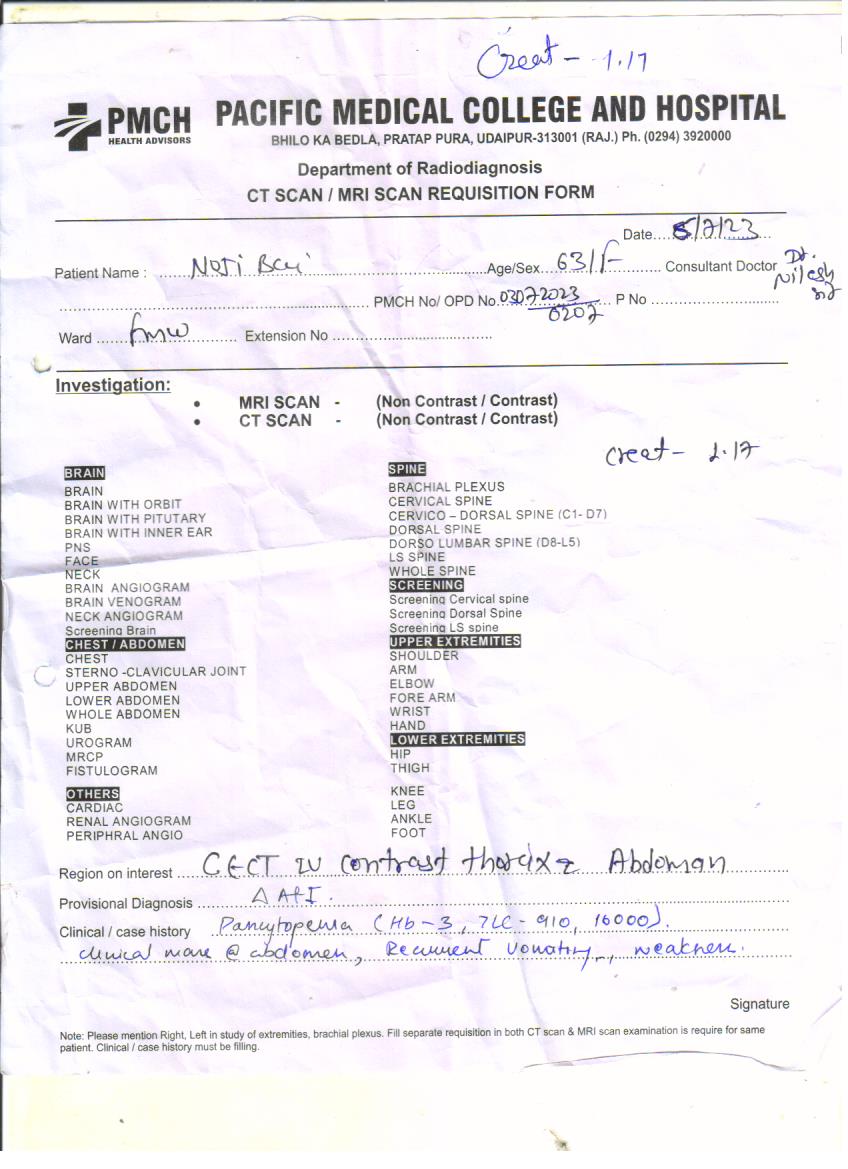 Creat - 1.17
PMCH
HEALTH ADVISORS
PACIFIC MEDICAL COLLEGE AND HOSPITAL
BHILO KA BEDLA, PRATAP PURA, UDAIPUR-313001 (RAJ.) Ph. (0294) 3920000
Department of Radiodiagnosis
CT SCAN / MRI SCAN REQUISITION FORM
Date....5/7/23
Patient Name : ......Noji Bai......Age/Sex...63/F...... Consultant Doctor Dr. Nilesh sir
PMCH No/ OPD No.03072023 P No
0207
Ward ....fmw.... Extension No
Investigation:
• MRI SCAN - (Non Contrast / Contrast)
• CT SCAN - (Non Contrast / Contrast)
Creat - 1.17
BRAIN
BRAIN
BRAIN WITH ORBIT
BRAIN WITH PITUTARY
BRAIN WITH INNER EAR
PNS
FACE
NECK
BRAIN ANGIOGRAM
BRAIN VENOGRAM
NECK ANGIOGRAM
Screening Brain
CHEST / ABDOMEN
CHEST
STERNO -CLAVICULAR JOINT
UPPER ABDOMEN
LOWER ABDOMEN
WHOLE ABDOMEN
KUB
UROGRAM
MRCP
FISTULOGRAM
OTHERS
CARDIAC
RENAL ANGIOGRAM
PERIPHRAL ANGIO
SPINE
BRACHIAL PLEXUS
CERVICAL SPINE
CERVICO – DORSAL SPINE (C1- D7)
DORSAL SPINE
DORSO LUMBAR SPINE (D8-L5)
LS SPINE
WHOLE SPINE
SCREENING
Screening Cervical spine
Screening Dorsal Spine
Screening LS spine
UPPER EXTREMITIES
SHOULDER
ARM
ELBOW
FORE ARM
WRIST
HAND
LOWER EXTREMITIES
HIP
THIGH
KNEE
LEG
ANKLE
FOOT
Region on interest ....CECT IV contrast thorax Abdoman
Provisional Diagnosis
Clinical / case history Pancytopenia (Hb-3, TLC-910, 16000).
clinical @ abdomen, Recurrent vomating, weakness.
Signature
Note: Please mention Right, Left in study of extremities, brachial plexus. Fill separate requisition in both CT scan & MRI scan examination is require for same
patient. Clinical / case history must be filling.